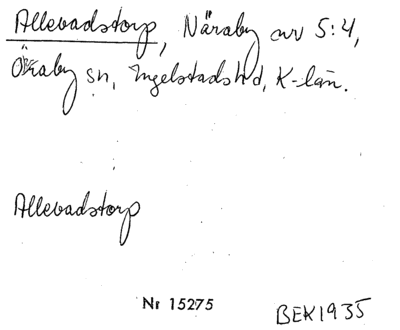 Allevadstorp, Näraby av 5:4,
Öraby sn, Ingelstads hd, K-län.
Allevadstorp
Nr 15275
BEK1935